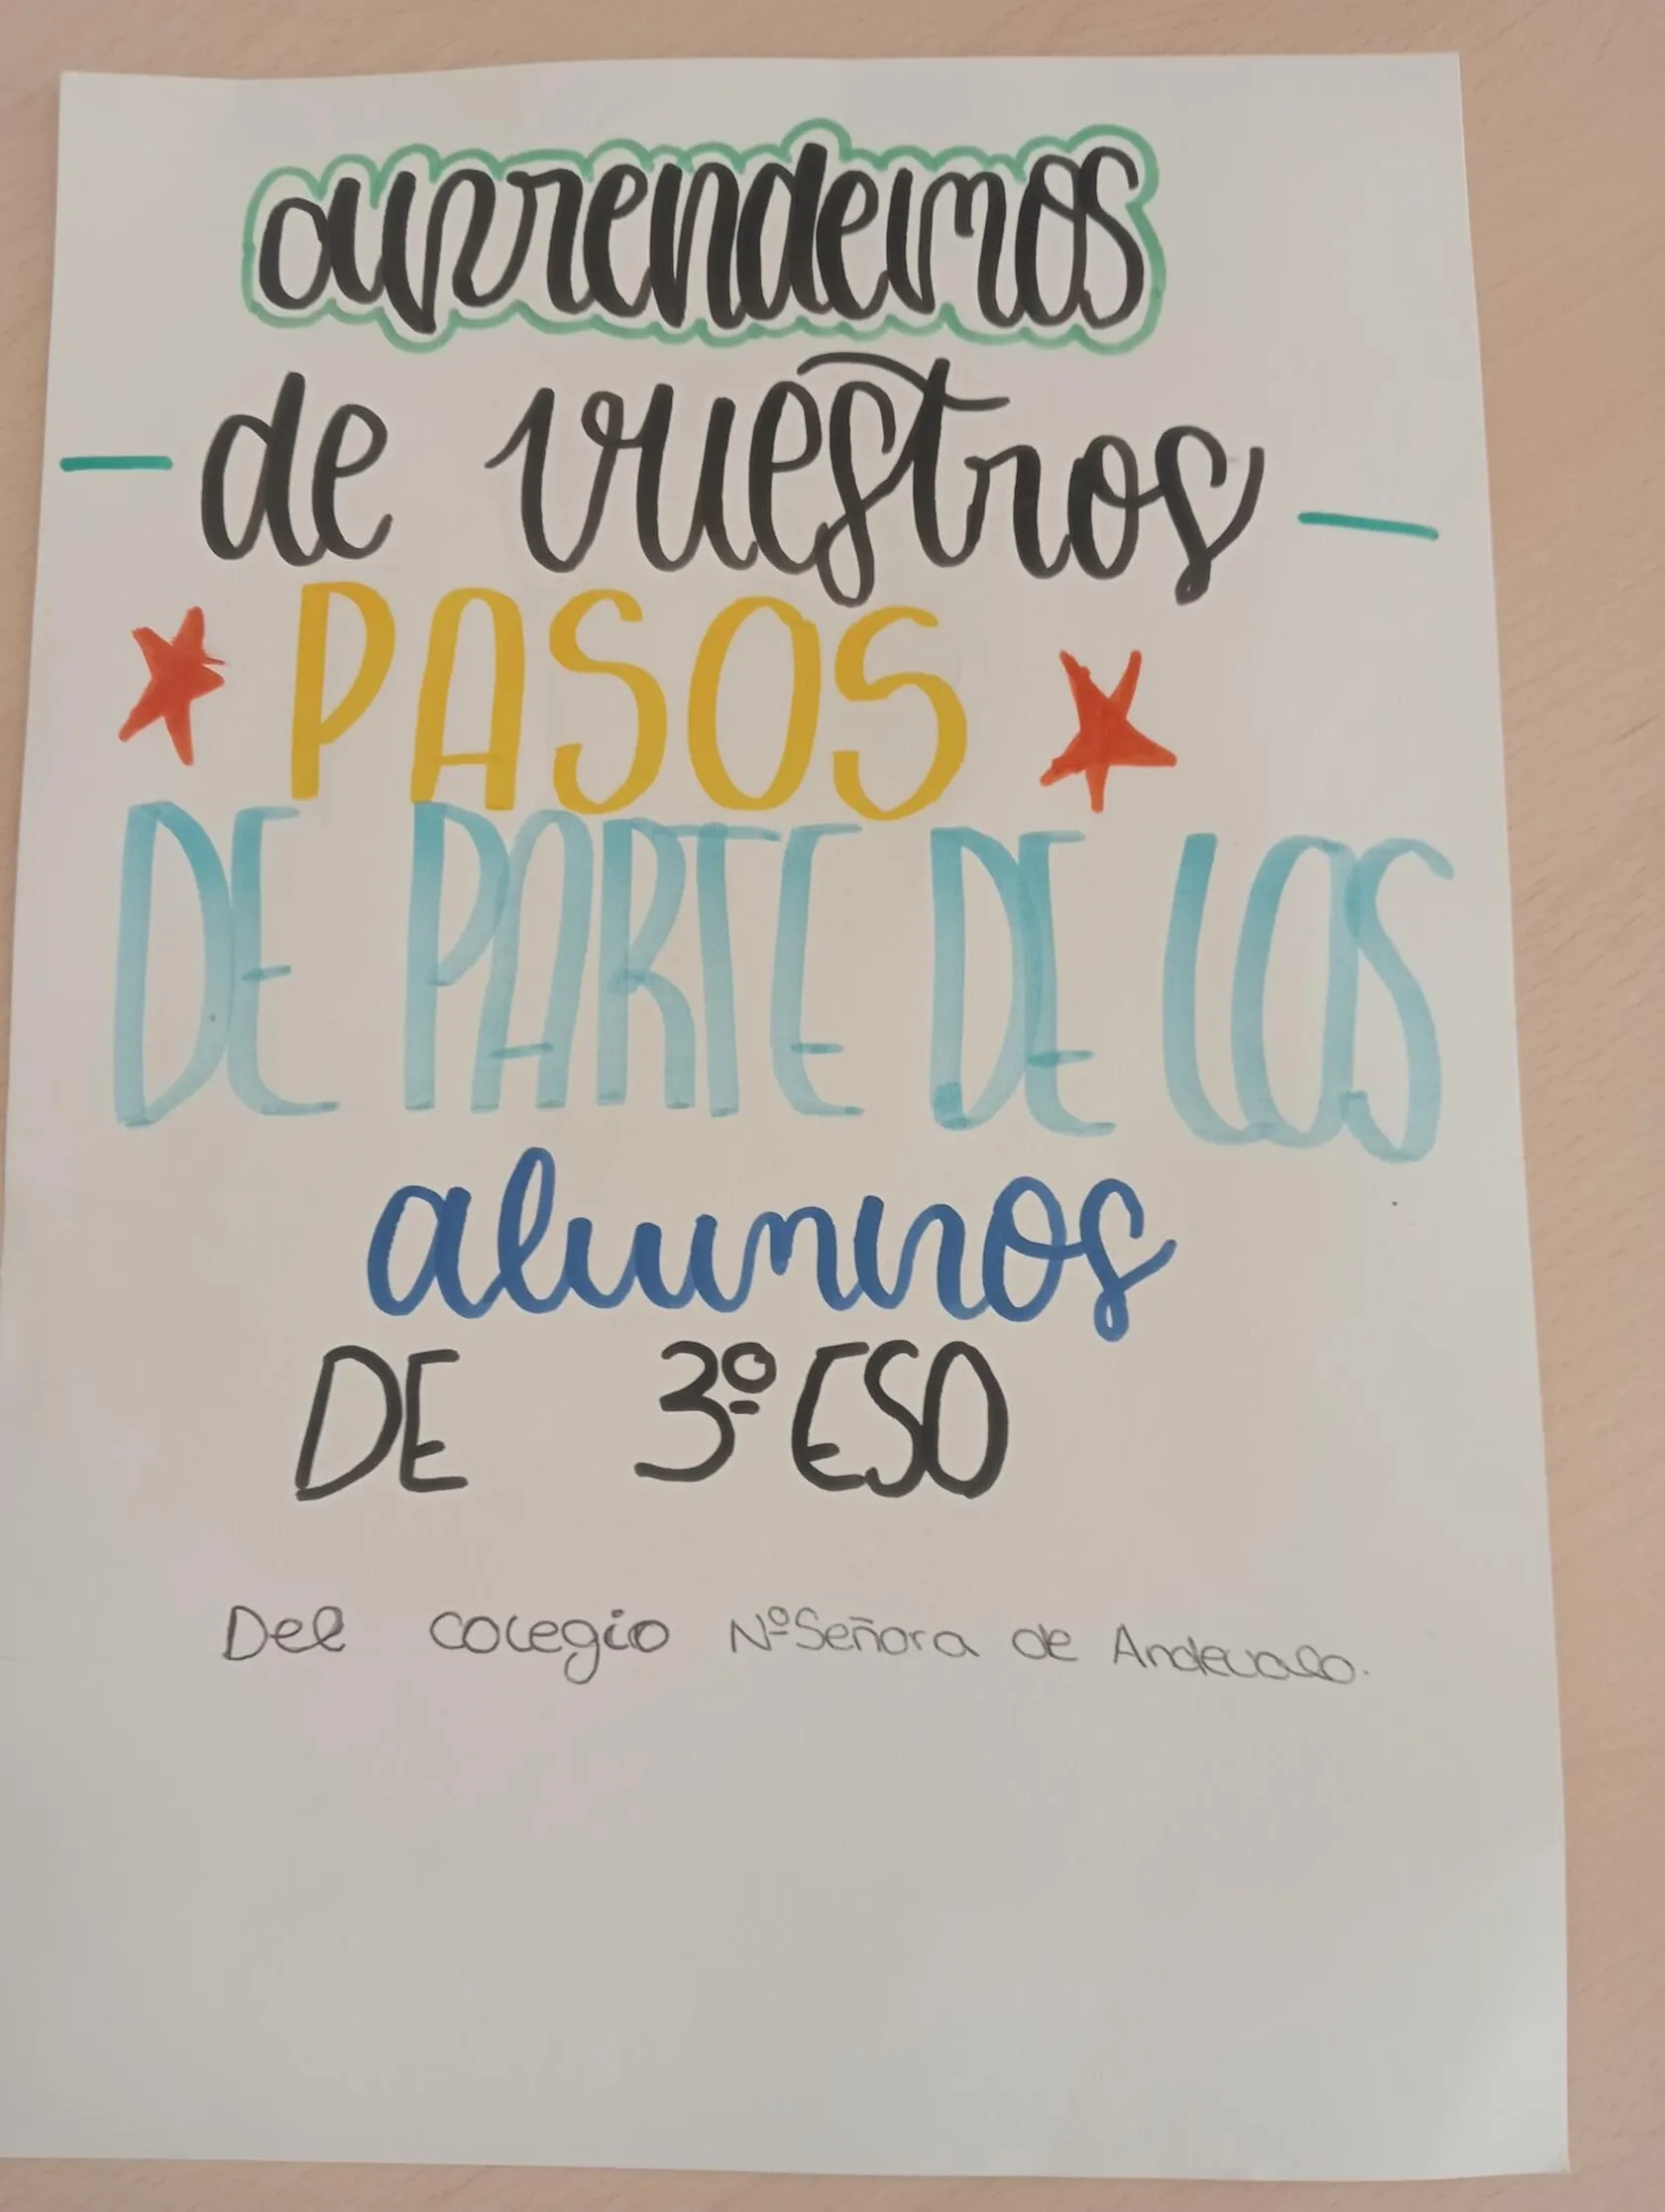 aprendemos
de vuestros
PASOS
DE PARTE DE LOS
alumnos
DE 3º ESO
Del colegio Nº Señora de Andevalo.